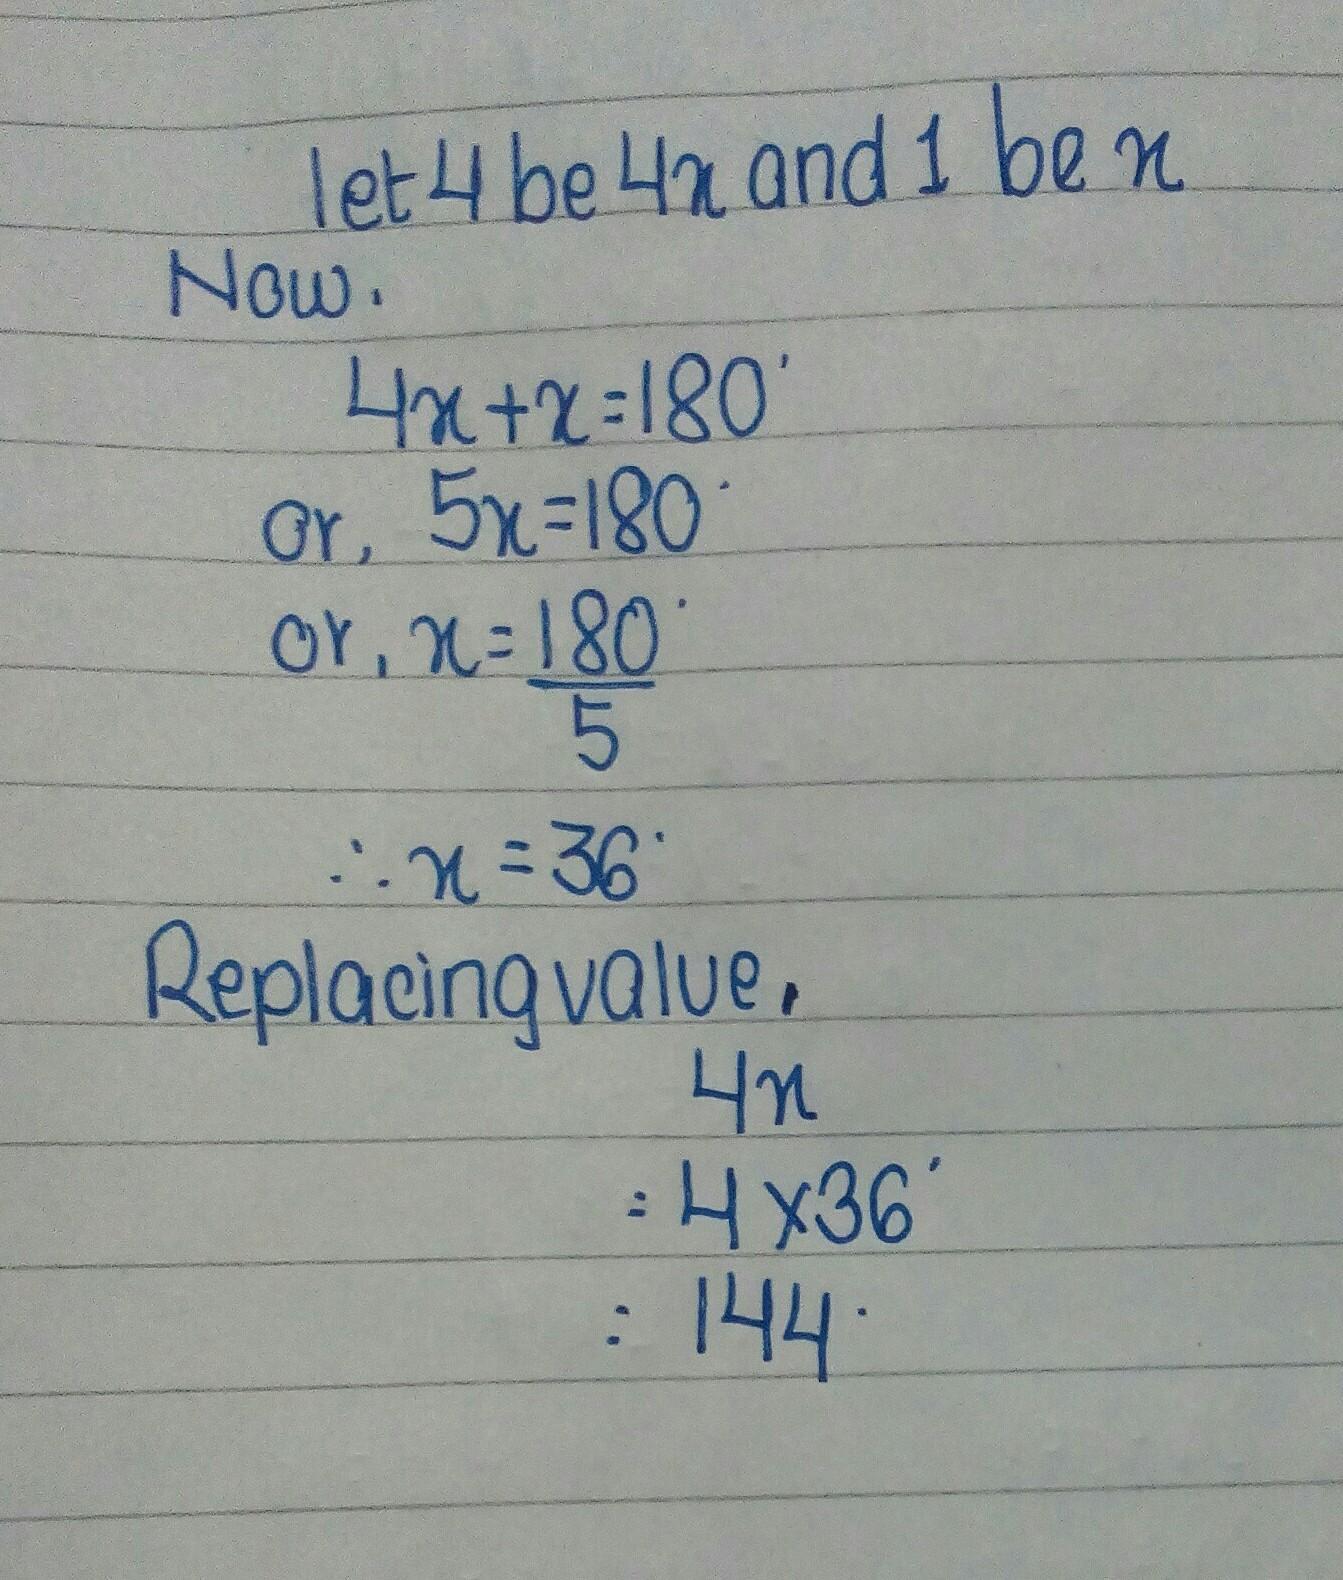 let 4 be 4x and 1 be x
Now.
4x+x=180°
or, 5x=180°
or, x=180°
5
∴ x = 36°
Replacing value,
4x
= 4×36°
= 144°